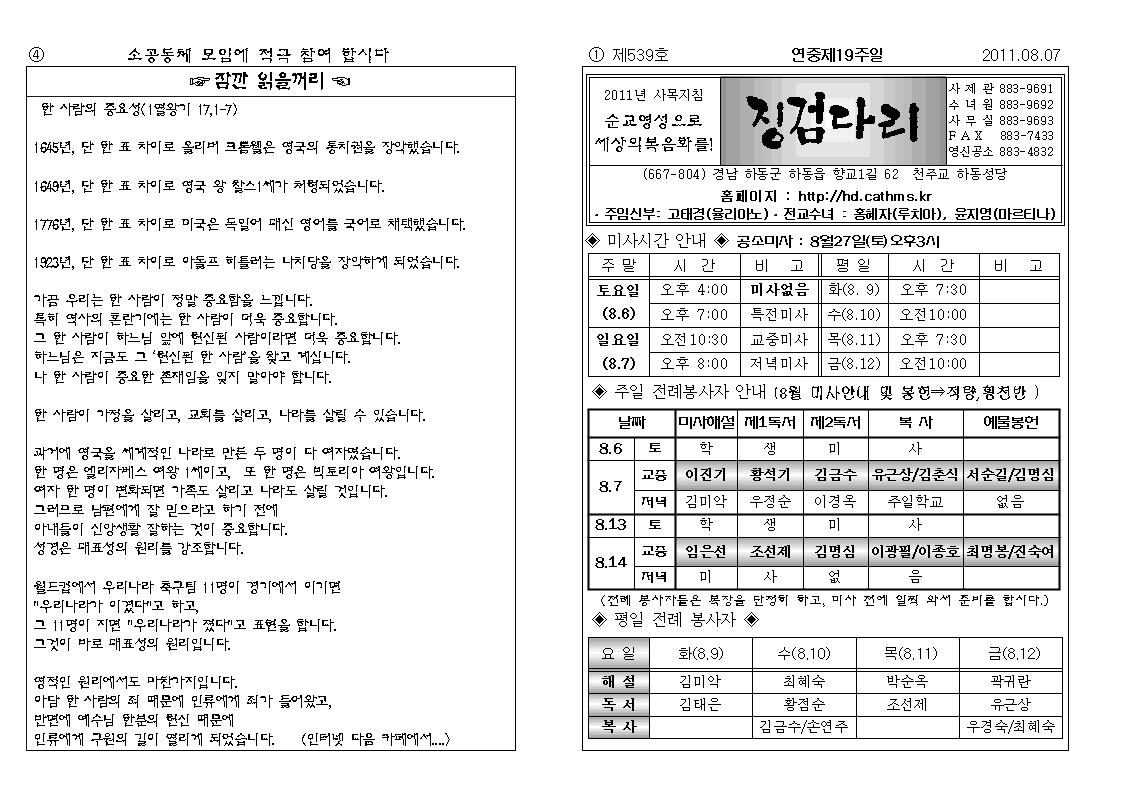 ④ 소공동체 모임에 적극 참여 합시다
☞ 잠깐 읽을꺼리 ☜
한 사람의 중요성(1열왕기 17,1-7)
1645년, 단 한 표 차이로 올리버 크롬웰은 영국의 통치권을 장악했습니다.
1649년, 단 한 표 차이로 영국 왕 찰스1세가 처형되었습니다.
1776년, 단 한 표 차이로 미국은 독일어 대신 영어를 국어로 채택했습니다.
1923년, 단 한 표 차이로 아돌프 히틀러는 나치당을 장악하게 되었습니다.
가끔 우리는 한 사람이 정말 중요함을 느낍니다.
특히 역사의 혼란기에는 한 사람이 더욱 중요합니다.
그 한 사람이 하느님 앞에 헌신된 사람이라면 더욱 중요합니다.
하느님은 지금도 그 '헌신된 한 사람'을 찾고 계십니다.
나 한 사람이 중요한 존재임을 잊지 말아야 합니다.
한 사람이 가정을 살리고, 교회를 살리고, 나라를 살릴 수 있습니다.
과거에 영국을 세계적인 나라로 만든 두 명이 다 여자였습니다.
한 명은 엘리자베스 여왕 1세이고, 또 한 명은 빅토리아 여왕입니다.
여자 한 명이 변화되면 가족도 살리고 나라도 살릴 것입니다.
그러므로 남편에게 잘 믿으라고 하기 전에
아내들이 신앙생활 잘하는 것이 중요합니다.
성경은 대표성의 원리를 강조합니다.
월드컵에서 우리나라 축구팀 11명이 경기에서 이기면
"우리나라가 이겼다"고 하고,
그 11명이 지면 "우리나라가 졌다"고 표현을 합니다.
그것이 바로 대표성의 원리입니다.
영적인 원리에서도 마찬가지입니다.
아담 한 사람의 죄 때문에 인류에게 죄가 들어왔고,
반면에 예수님 한분의 헌신 때문에
인류에게 구원의 길이 열리게 되었습니다. (인터넷 다음 카페에서....)
① 제539호 연중제19주일 2011.08.07
2011년 사목지침
순교영성으로
세상의복음화를!
징검다리
사 제 관 883-9691
수 녀 원 883-9692
사 무 실 883-9693
F A X 883-7433
영신공소 883-4832
(667-804) 경남 하동군 하동읍 향교1길 62 천주교 하동성당
홈페이지 : http://hd.cathms.kr
· 주임신부: 고태경(율리아노) · 전교수녀 : 홍혜자(루치아), 윤지영(마르티나)
◈ 미사시간 안내 ◈ 공소미사 : 8월27일(토)오후3시
주 말 시 간 비 고 평 일 시 간 비 고
토요일 오후 4:00 미사없음 화(8. 9) 오후 7:30
(8.6) 오후 7:00 특전미사 수(8.10) 오전10:00
일요일 오전10:30 교중미사 목(8.11) 오후 7:30
(8.7) 오후 8:00 저녁미사 금(8.12) 오전10:00
◈ 주일 전례봉사자 안내 (8월 미사안내 및 봉헌⇒적량,횡천반 )
날짜 미사해설 제1독서 제2독서 복 사 예물봉헌
8.6 토 학 생 미 사
8.7 교중 이진기 황석기 김금수 유근상/김춘식 서순길/김명심
저녁 김미악 우정순 이경옥 주일학교 없음
8.13 토 학 생 미 사
8.14 교중 임은선 조선제 김명심 이광필/이종호 최명봉/진숙여
저녁 미 사 없 음
(전례 봉사자들은 복장을 단정히 하고, 미사 전에 일찍 와서 준비를 합시다.)
◈ 평일 전례 봉사자 ◈
요 일 화(8.9) 수(8.10) 목(8.11) 금(8.12)
해 설 김미악 최혜숙 박순옥 곽귀란
독 서 김태은 황점순 조선제 유근상
복 사 김금수/손연주 우경숙/최혜숙